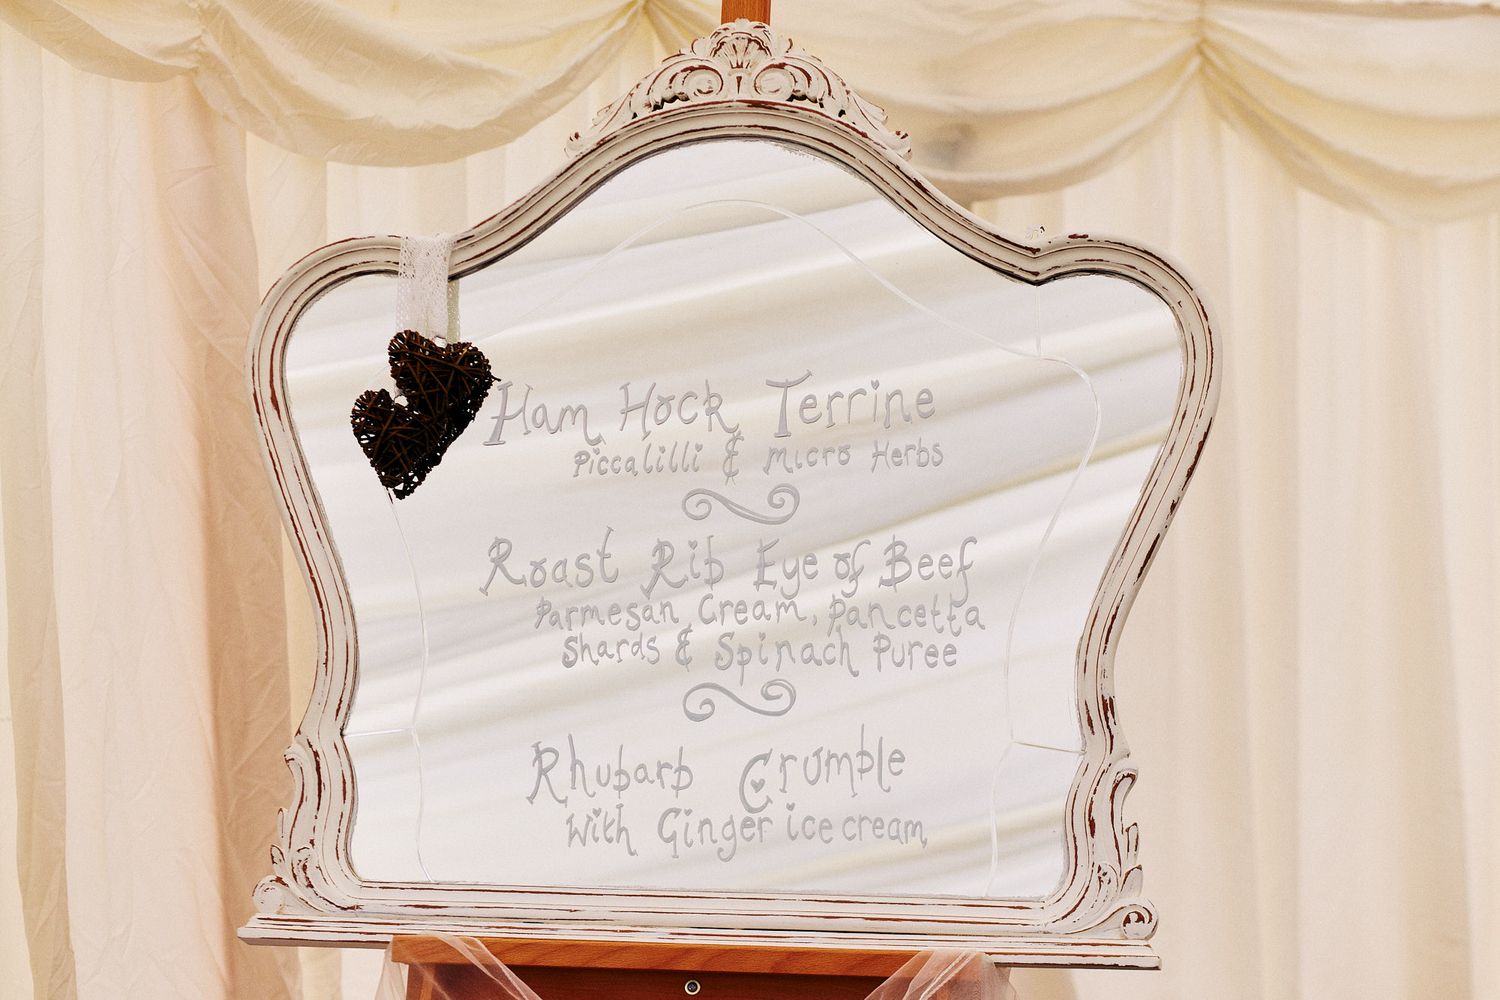 Ham Hock Terrine
Piccalilli & Micro Herbs
Roast Rib Eye of Beef
Parmesan Cream, Pancetta
Shards & Spinach Puree
Rhubarb Crumble
With Ginger ice cream